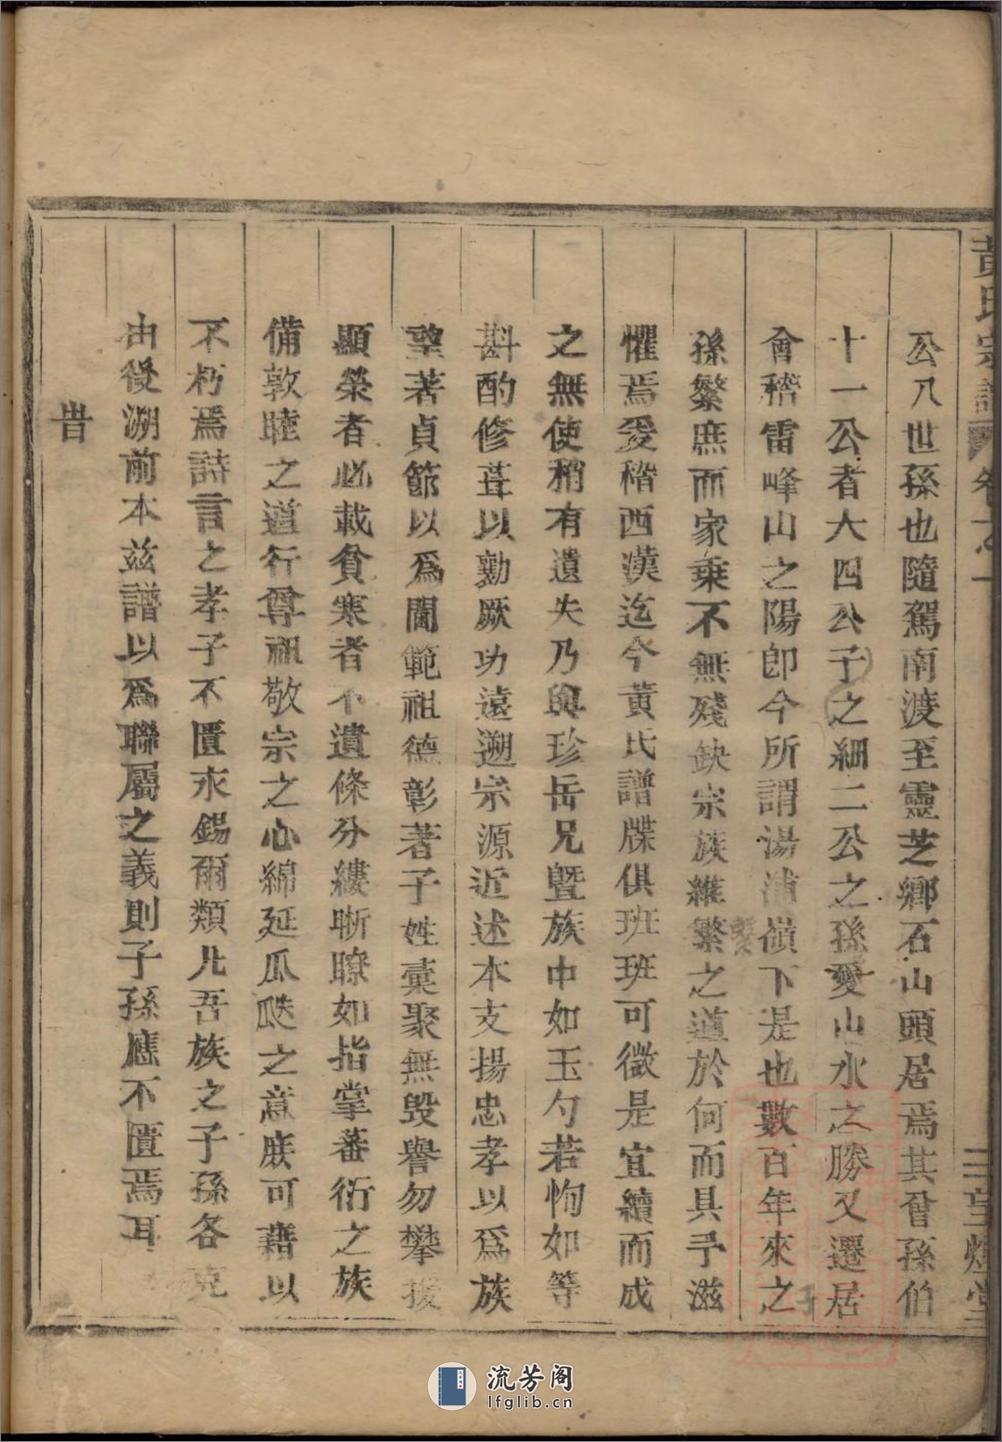 黃氏宗譜 卷之一 三 望煙堂
公八世孫也隨駕南渡至靈芝鄉石山頭居焉其曾孫伯
十一公者大四公子之細二公之孫愛山水之勝又遷居
會稽雷峰山之陽卽今所謂湯浦嶺下是也數百年來之
孫繁庶而家乘不無殘缺宗族維繁之道於何而具予滋
懼焉爰稽西漢迄今黃氏譜牒俱班班可徵是宜續而成
之無使稍有遺失乃與珍岳兄曁族中如玉勺若恂如等
斟酌修葺以勷厥功遠遡宗源近述本支揚忠孝以爲族
望著貞節以爲閫範祖德彰著子姓彚聚無毁譽勿攀援
顯榮者必載貧寒者不遺條分縷晰瞭如指掌蕃衍之族
備敦睦之道行尊祖敬宗之心綿延瓜瓞之意庶可藉以
不朽焉詩言之孝子不匱永錫爾類凡吾族之子孫各克
由後溯前本兹譜以爲聯屬之義則子孫應不匱焉耳
旹
流芳阁
lfglib.cn